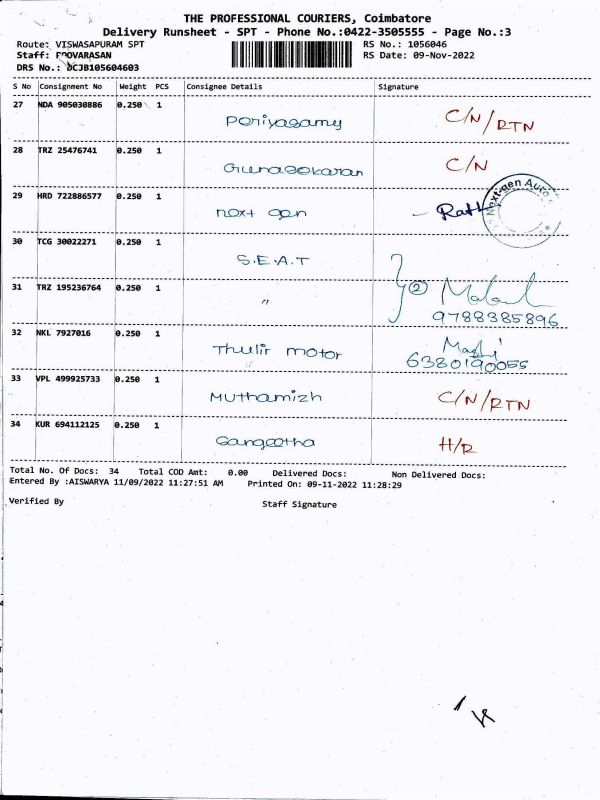 THE PROFESSIONAL COURIERS, Coimbatore
Delivery Runsheet - SPT - Phone No.:0422-3505555 - Page No.:3
Route: VISWASAPURAM SPT RS No.: 1056046
Staff: POOVARASAN RS Date: 09-Nov-2022
DRS No.: DCJB105604603
S No Consignment No Weight PCS Consignee Details Signature
27 NDA 905030886 0.250 1 Periyasamy C/N/RTN
28 TRZ 25476741 0.250 1 Gunasekaran C/N
29 HRD 722886577 0.250 1 next gen Next-gen Auto
30 TCG 30022271 0.250 1 S.E.A.T
31 TRZ 195236764 0.250 1 " 2
9788385896
32 NKL 7927016 0.250 1 Thulir motor
6380190055
33 VPL 499925733 0.250 1 Muthamizh C/N/RTN
34 KUR 694112125 0.250 1 Sangeetha H/R
Total No. Of Docs: 34 Total COD Amt: 0.00 Delivered Docs: Non Delivered Docs:
Entered By :AISWARYA 11/09/2022 11:27:51 AM Printed On: 09-11-2022 11:28:29
Verified By Staff Signature